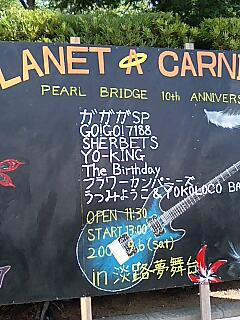 LANET ☆ CARN
PEARL BRIDGE 10th ANNIVERS
ガガガSP
GO!GO!7188
SHERBETS
YO-KING
The Birthday
フラワーカンパニーズ
うつみようこ & YOKOLOCO BA
OPEN 11:30
START 13:00
200 9.6 (sat)
in 淡路夢舞台